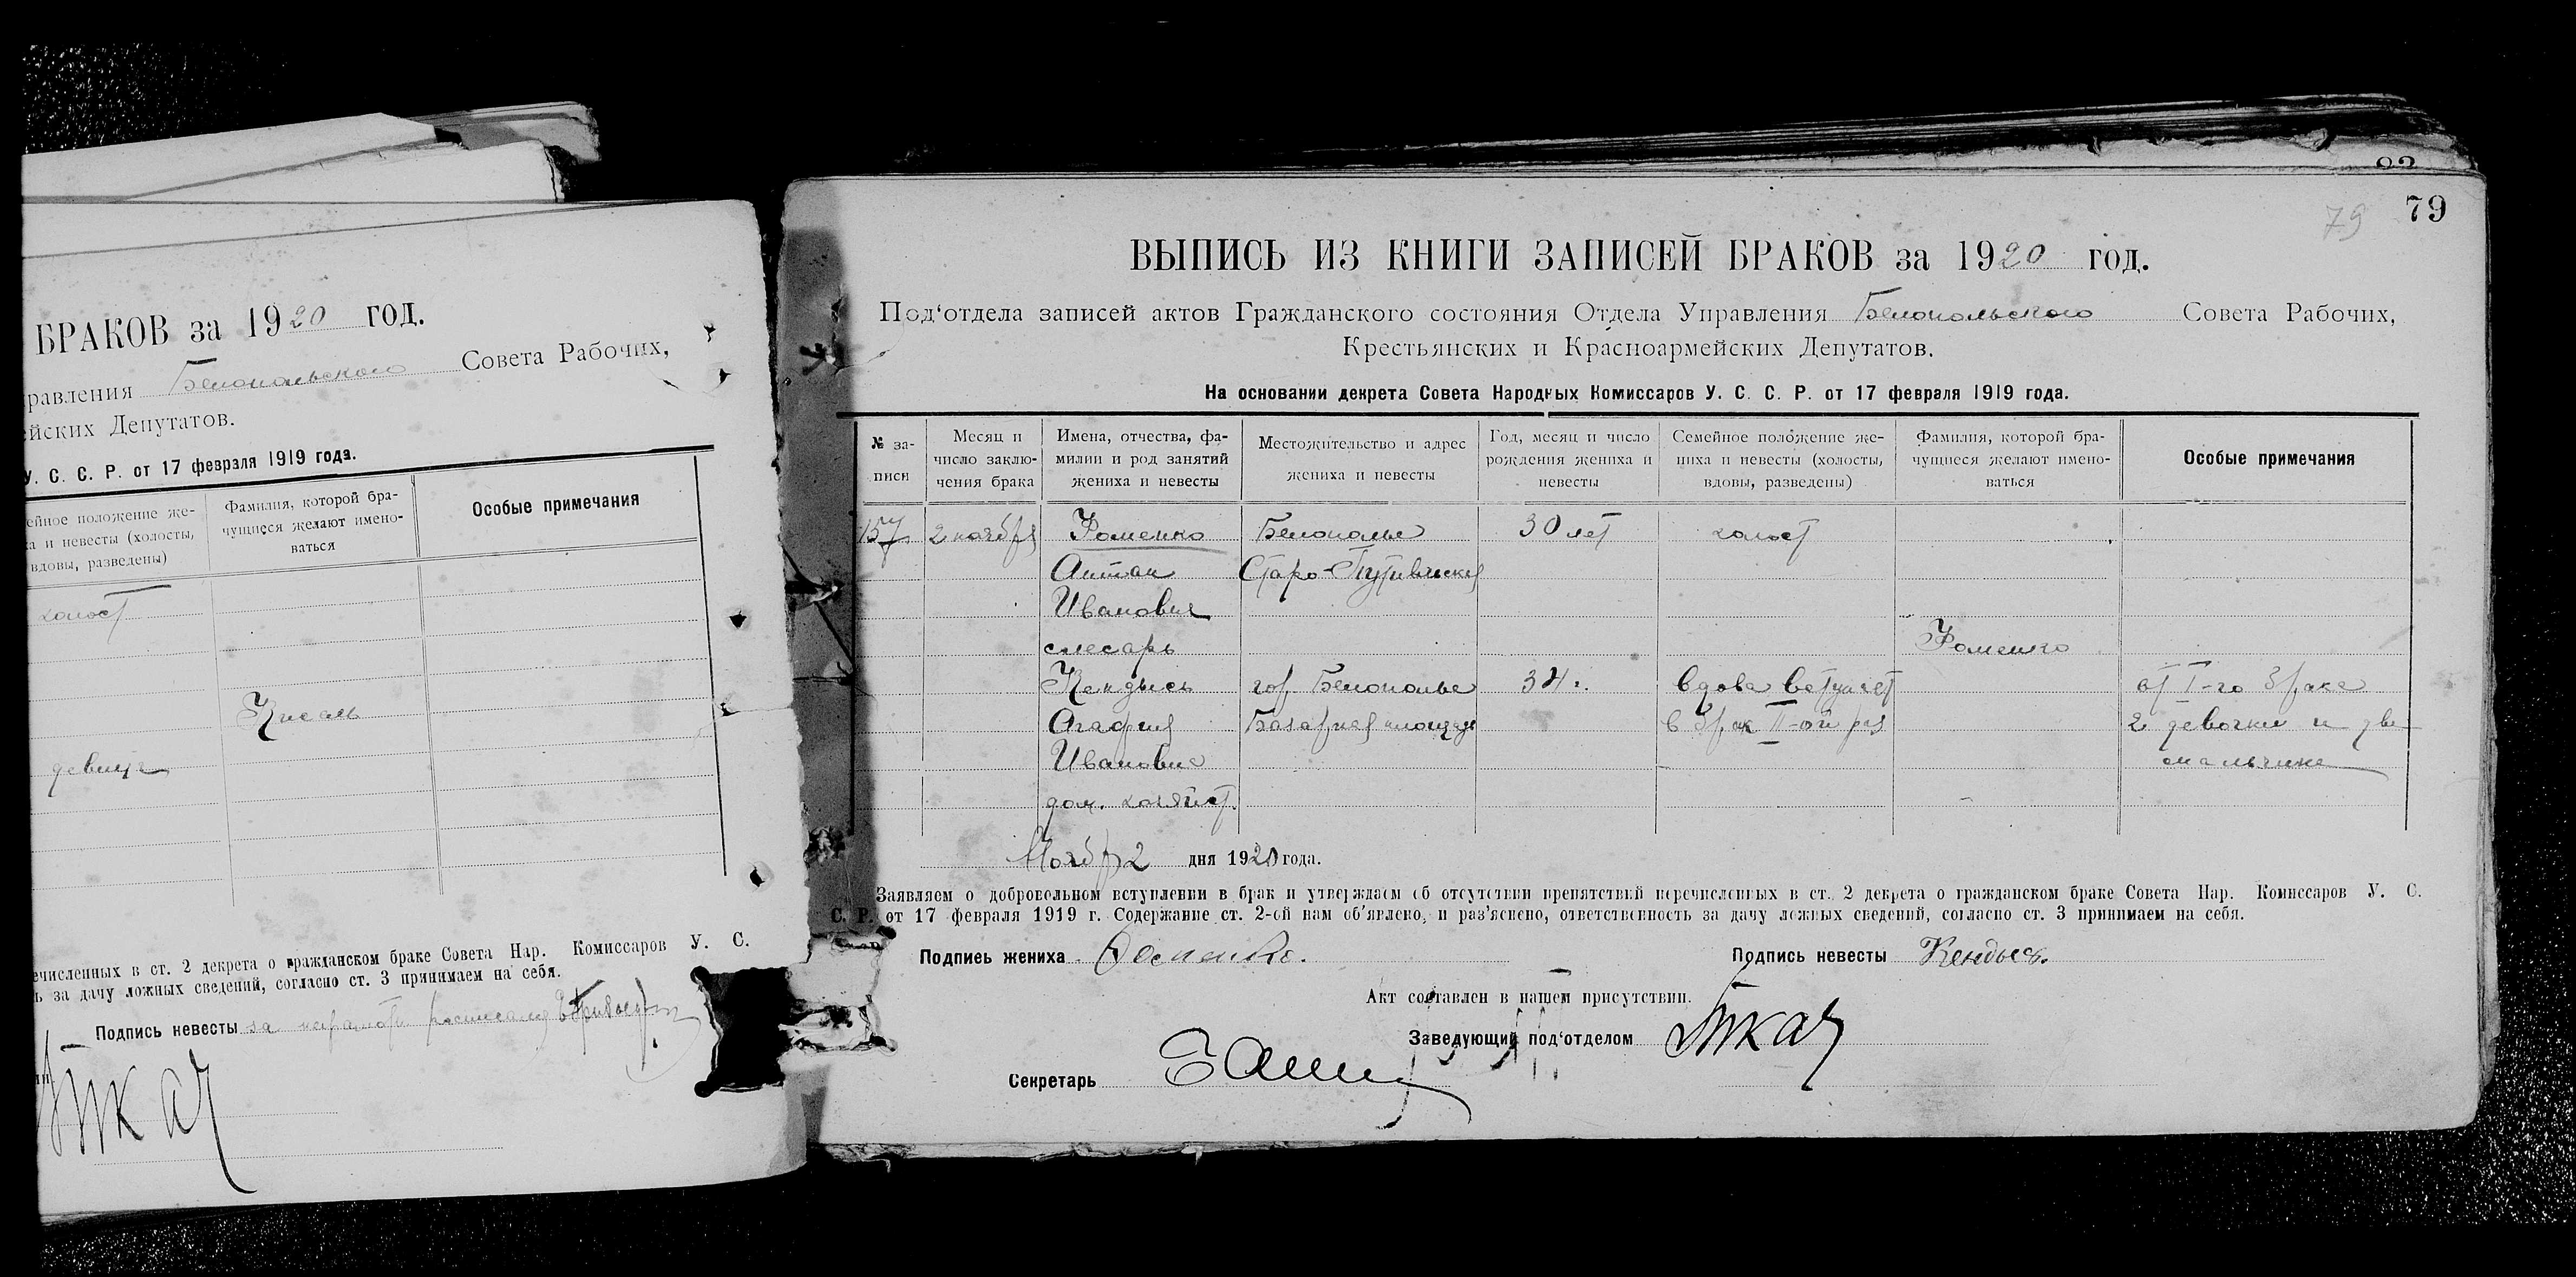 БРАКОВ за 1920 год.
равления Белопольского Совета Рабочих,
ейских Депутатов.
У. С. С. Р. от 17 февраля 1919 года.
ейное положение же-
а и невесты (холосты,
вдовы, разведены)
Фамилия, которой бра-
чущиеся желают имено-
ваться
Особые примечания
холост
Кисель
девица
ечисленных в ст. 2 декрета о гражданском браке Совета Нар. Комиссаров У. С.
ь за дачу ложных сведений, согласно ст. 3 принимаем на себя.
Подпись невесты за
Ткач
79
79
ВЫПИСЬ ИЗ КНИГИ ЗАПИСЕЙ БРАКОВ за 1920 год.
Под'отдела записей актов Гражданского состояния Отдела Управления Белопольского Совета Рабочих,
Крестьянских и Красноармейских Депутатов.
На основании декрета Совета Народных Комиссаров У. С. С. Р. от 17 февраля 1919 года.
№ за-
писи
Месяц и
число заклю-
чения брака
Имена, отчества, фа-
милии и род занятий
жениха и невесты
Местожительство и адрес
жениха и невесты
Год, месяц и число
рождения жениха и
невесты
Семейное положение же-
ниха и невесты (холосты,
вдовы, разведены)
Фамилия, которой бра-
чущиеся желают имено-
ваться
Особые примечания
157 2 ноября Фоменко Белополье 30 лет холост
Антон Старо-Путивльская
Иванович
слесарь Фоменко
Кендысь гор. Белополье 34 г. вдова вступает от I-го брака
Агафия Базарная площадь в брак II-ой раз 2 девочки и два
Ивановна мальчика
дом. хозяйст.
Ноября 2 дня 1920 года.
Заявляем о добровольном вступлении в брак и утверждаем об отсутствии препятствий перечисленных в ст. 2 декрета о гражданском браке Совета Нар. Комиссаров У. С.
С. Р. от 17 февраля 1919 г. Содержание ст. 2-ой нам об'явлено, и раз'яснено, ответственность за дачу ложных сведений, согласно ст. 3 принимаем на себя.
Подпись жениха Фоменко. Подпись невесты Кендысь.
Акт составлен в нашем присутствии.
Заведующий под'отделом Ткач
Секретарь